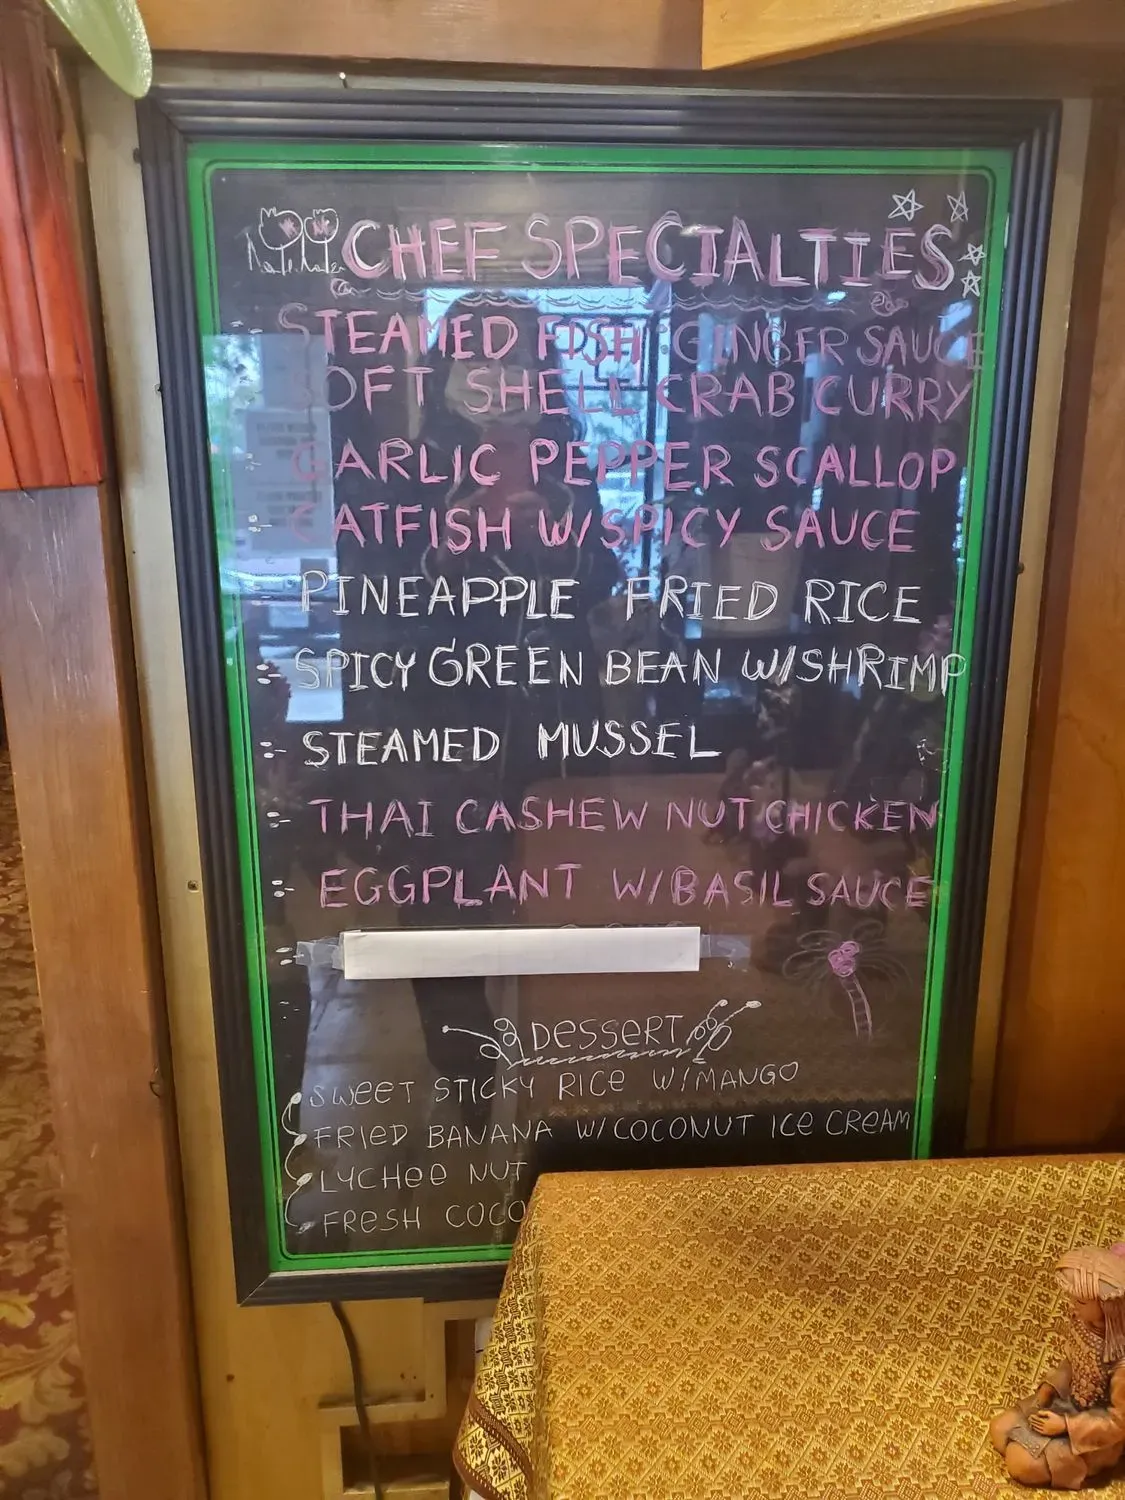 CHEF SPECIALTIES
STEAMED FISH: GINGER SAUCE
SOFT SHELL CRAB CURRY
GARLIC PEPPER SCALLOP
CATFISH W/SPICY SAUCE
PINEAPPLE FRIED RICE
SPICY GREEN BEAN W/SHRIMP
STEAMED MUSSEL
THAI CASHEW NUT CHICKEN
EGGPLANT W/BASIL SAUCE
DESSERT
SWEET STICKY RICE W/MANGO
FRIED BANANA W/COCONUT ICE CREAM
LYCHEE NUT
FRESH COCO